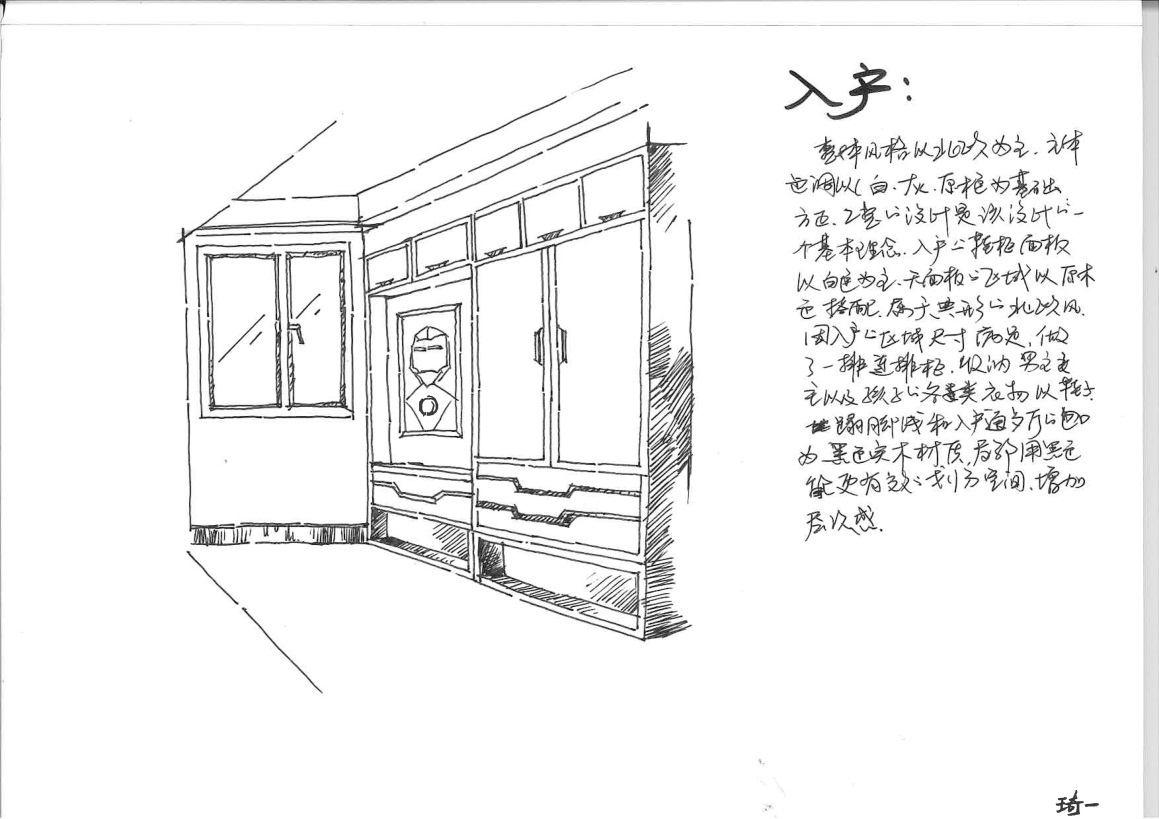 入户:
整体风格以北欧为主.主体
色调以白.灰.原柜为基础
方正、工整的设计是该设计的一
个基本理念.入户的鞋柜面板
以白色为主.无面板的区域以原木
色搭配.属于典形的北欧风.
因入户的区域尺寸满足,做
了一排连排柜.收纳男主女
主以及孩子的各类衣物以鞋子.
踢脚线和入户通客厅的包口
为黑色实木材质.局部用黑色
能更有效的划分空间.增加
层次感.
琦一